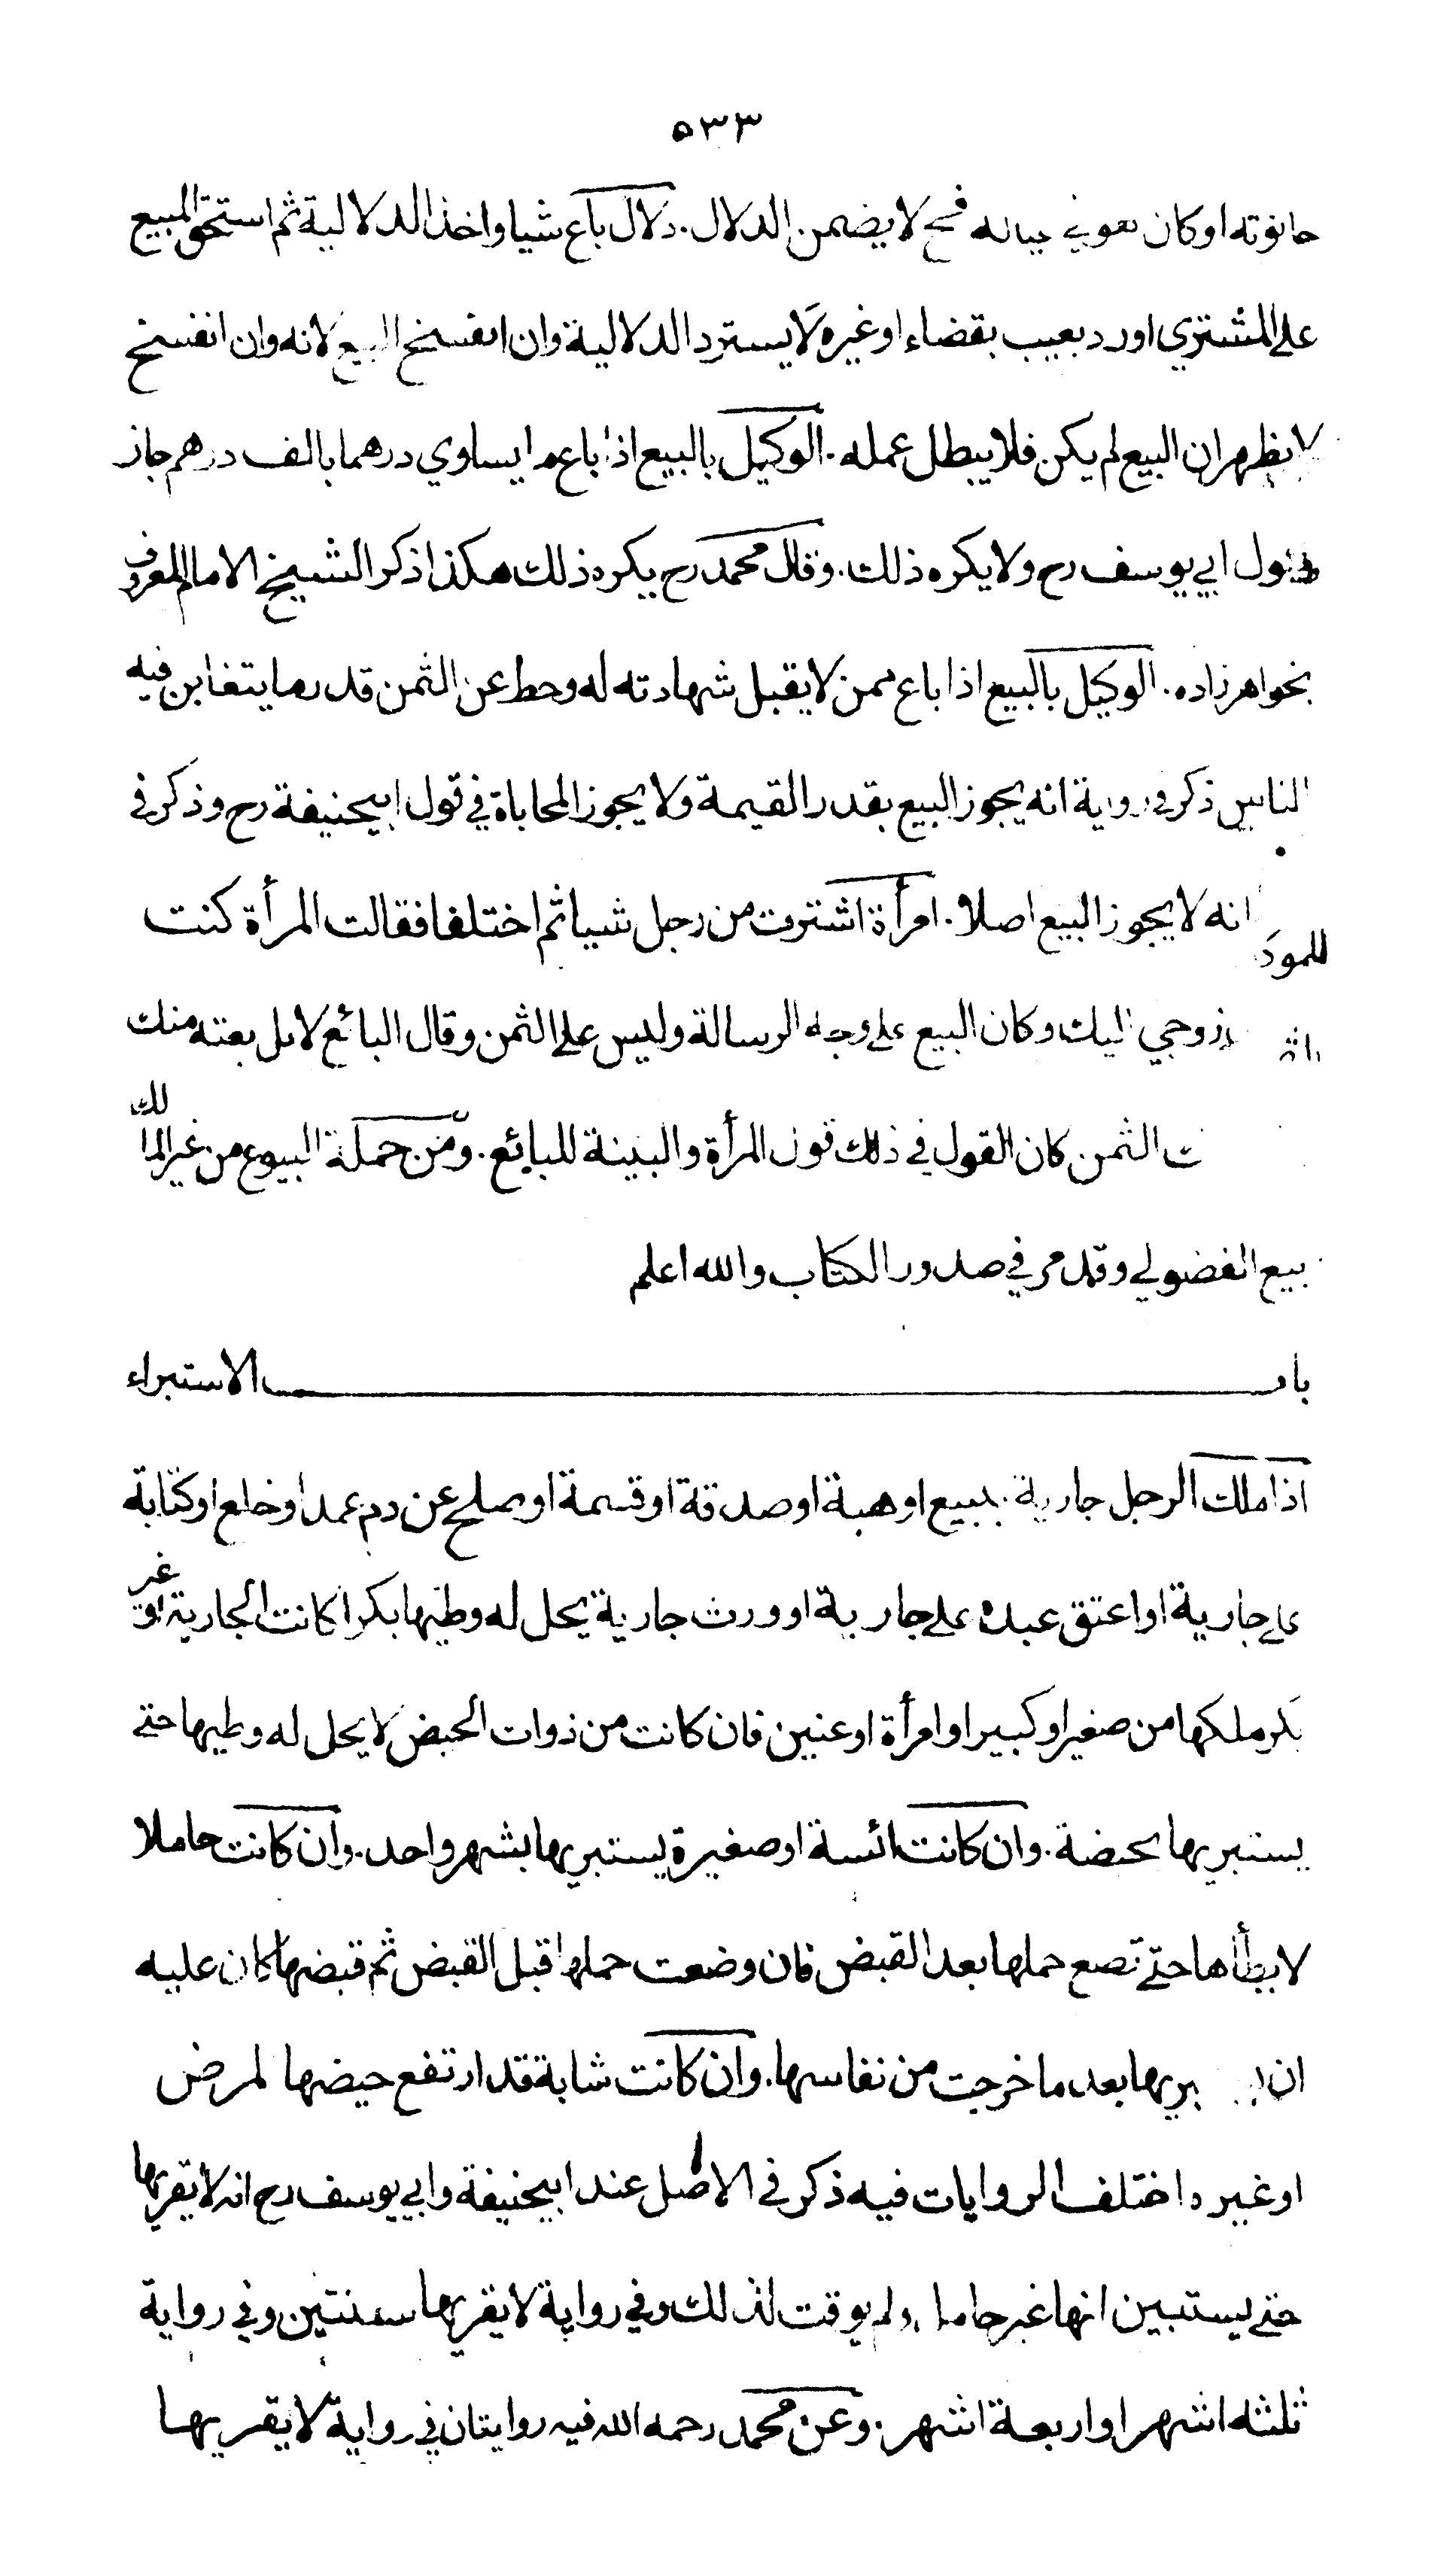 ٥٣٣
حانوته او كان فح لا يضمن الدلال. دلال باع شيا واخذ الدلالية ثم استحق المبيع
على المشتري او رد بعيب بقضاء او غيره لا يسترد الدلالية وان انفسخ البيع لانه وان انفسخ
لا يظهر ان البيع لم يكن فلا يبطل عمله. الوكيل بالبيع اذا باع ما يساوي درهما بالف درهم جاز
ابي يوسف رح ولا يكره ذلك. وقال محمد رح يكره ذلك هكذا ذكر الشيخ الامام المعروف
بخواهرزاده. الوكيل بالبيع اذا باع ممن لا يقبل شهادته له وحط عن الثمن قدر ما يتغابن فيه
الناس ذكر في رواية انه يجوز البيع بقدر القيمة ولا يجوز المحاباة في قول ابيحنيفة رح وذكر في
انه لا يجوز البيع اصلا. امرأة اشترت من رجل شيا ثم اختلفا فقالت المرأة كنت
زوجي اليك وكان البيع على وجه الرسالة وليس علي الثمن وقال البائع لا بل بعته منك
الثمن كان القول في ذلك قول المرأة والبينة للبايع. ومن جملة البيوع من غير المالك
بيع الفضولي وقد مر في صدور الكتاب والله اعلم
باب الاستبراء
اذا ملك الرجل جارية ببيع او هبة او صدقة او قسمة او صلح عن دم عمد او خلع او كتابة
على جارية او اعتق عبده على جارية او ورث جارية يحل له وطيها بكرا كانت الجارية او غير
بكر ملكها من صغير او كبير او امرأة او عنين فان كانت من ذوات الحيض لا يحل له وطيها حتى
يستبريها بحيضة. وان كانت ائسة او صغيرة يستبريها بشهر واحد. وان كانت حاملا
لا يطأها حتى تضع حملها بعد القبض فان وضعت حملها قبل القبض ثم قبضها كان عليه
ان بعد ما خرجت من نفاسها. وان كانت شابة قد ارتفع حيضها لمرض
او غيره اختلف الروايات فيه ذكر في الاصل عند ابيحنيفة وابي يوسف رح انه لا يقربها
حتى يستبين انها غير حامل ولم يوقت لذلك وفي رواية لا يقربها سنتين وفي رواية
ثلثه اشهر او اربعة اشهر. وعن محمد رحمه الله فيه روايتان في رواية لا يقربها